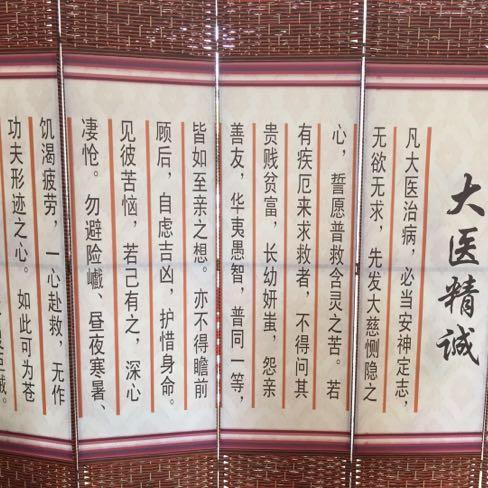 大医精诚
凡大医治病，必当安神定志，
无欲无求，先发大慈恻隐之
心，誓愿普救含灵之苦。若
有疾厄来求救者，不得问其
贵贱贫富，长幼妍蚩，怨亲
善友，华夷愚智，普同一等，
皆如至亲之想。亦不得瞻前
顾后，自虑吉凶，护惜身命。
见彼苦恼，若己有之，深心
凄怆。勿避险巇、昼夜寒暑、
饥渴疲劳，一心赴救，无作
功夫形迹之心。如此可为苍